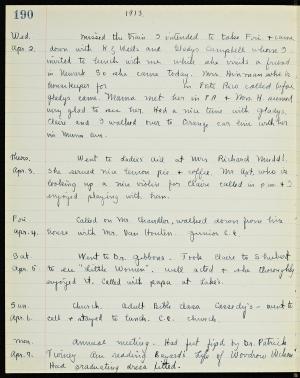 190
1913.
Wed. Missed the train I intended to take Fri + came
Apr. 2. down with K.G. Wells and Gladys Campbell whom I
invited to lunch with me when she visits a friend
in Newark. So she came today. Mrs. who is
housekeeper for in Porto Rico called before
Gladys came. Mama met her in P.R. + Mrs. H. seemed
very glad to see her. Had a nice time with Gladys.
Claire and I walked over to Orange car line with her
in p.m.
Thurs. Went to Ladies Aid at Mrs Richard
Apr. 3. She served nice lemon pie + coffee. Mr. who is
looking up a nice violin for Claire called in p.m. + I
enjoyed playing with him.
Fri. Called on Mr Chandler, walked down from his
Apr. 4. house with Mr. Van Houten. Junior C.E.
Sat. Went to Dr. Gibbons. Took Claire to Shubert
Apr. 5 to see "Little Women", well acted + she thoroughly
enjoyed it. Called with papa at Lake's.
Sun. Church. Adult Bible class Cassedy's - went to
Apr. 6. call + stayed to lunch. C.E. church.
Mon. Annual meeting. Had foot fixed by Dr. Patrick
Apr. 7. Twomey. Am reading life of Woodrow Wilson
Had graduating dress fitted.